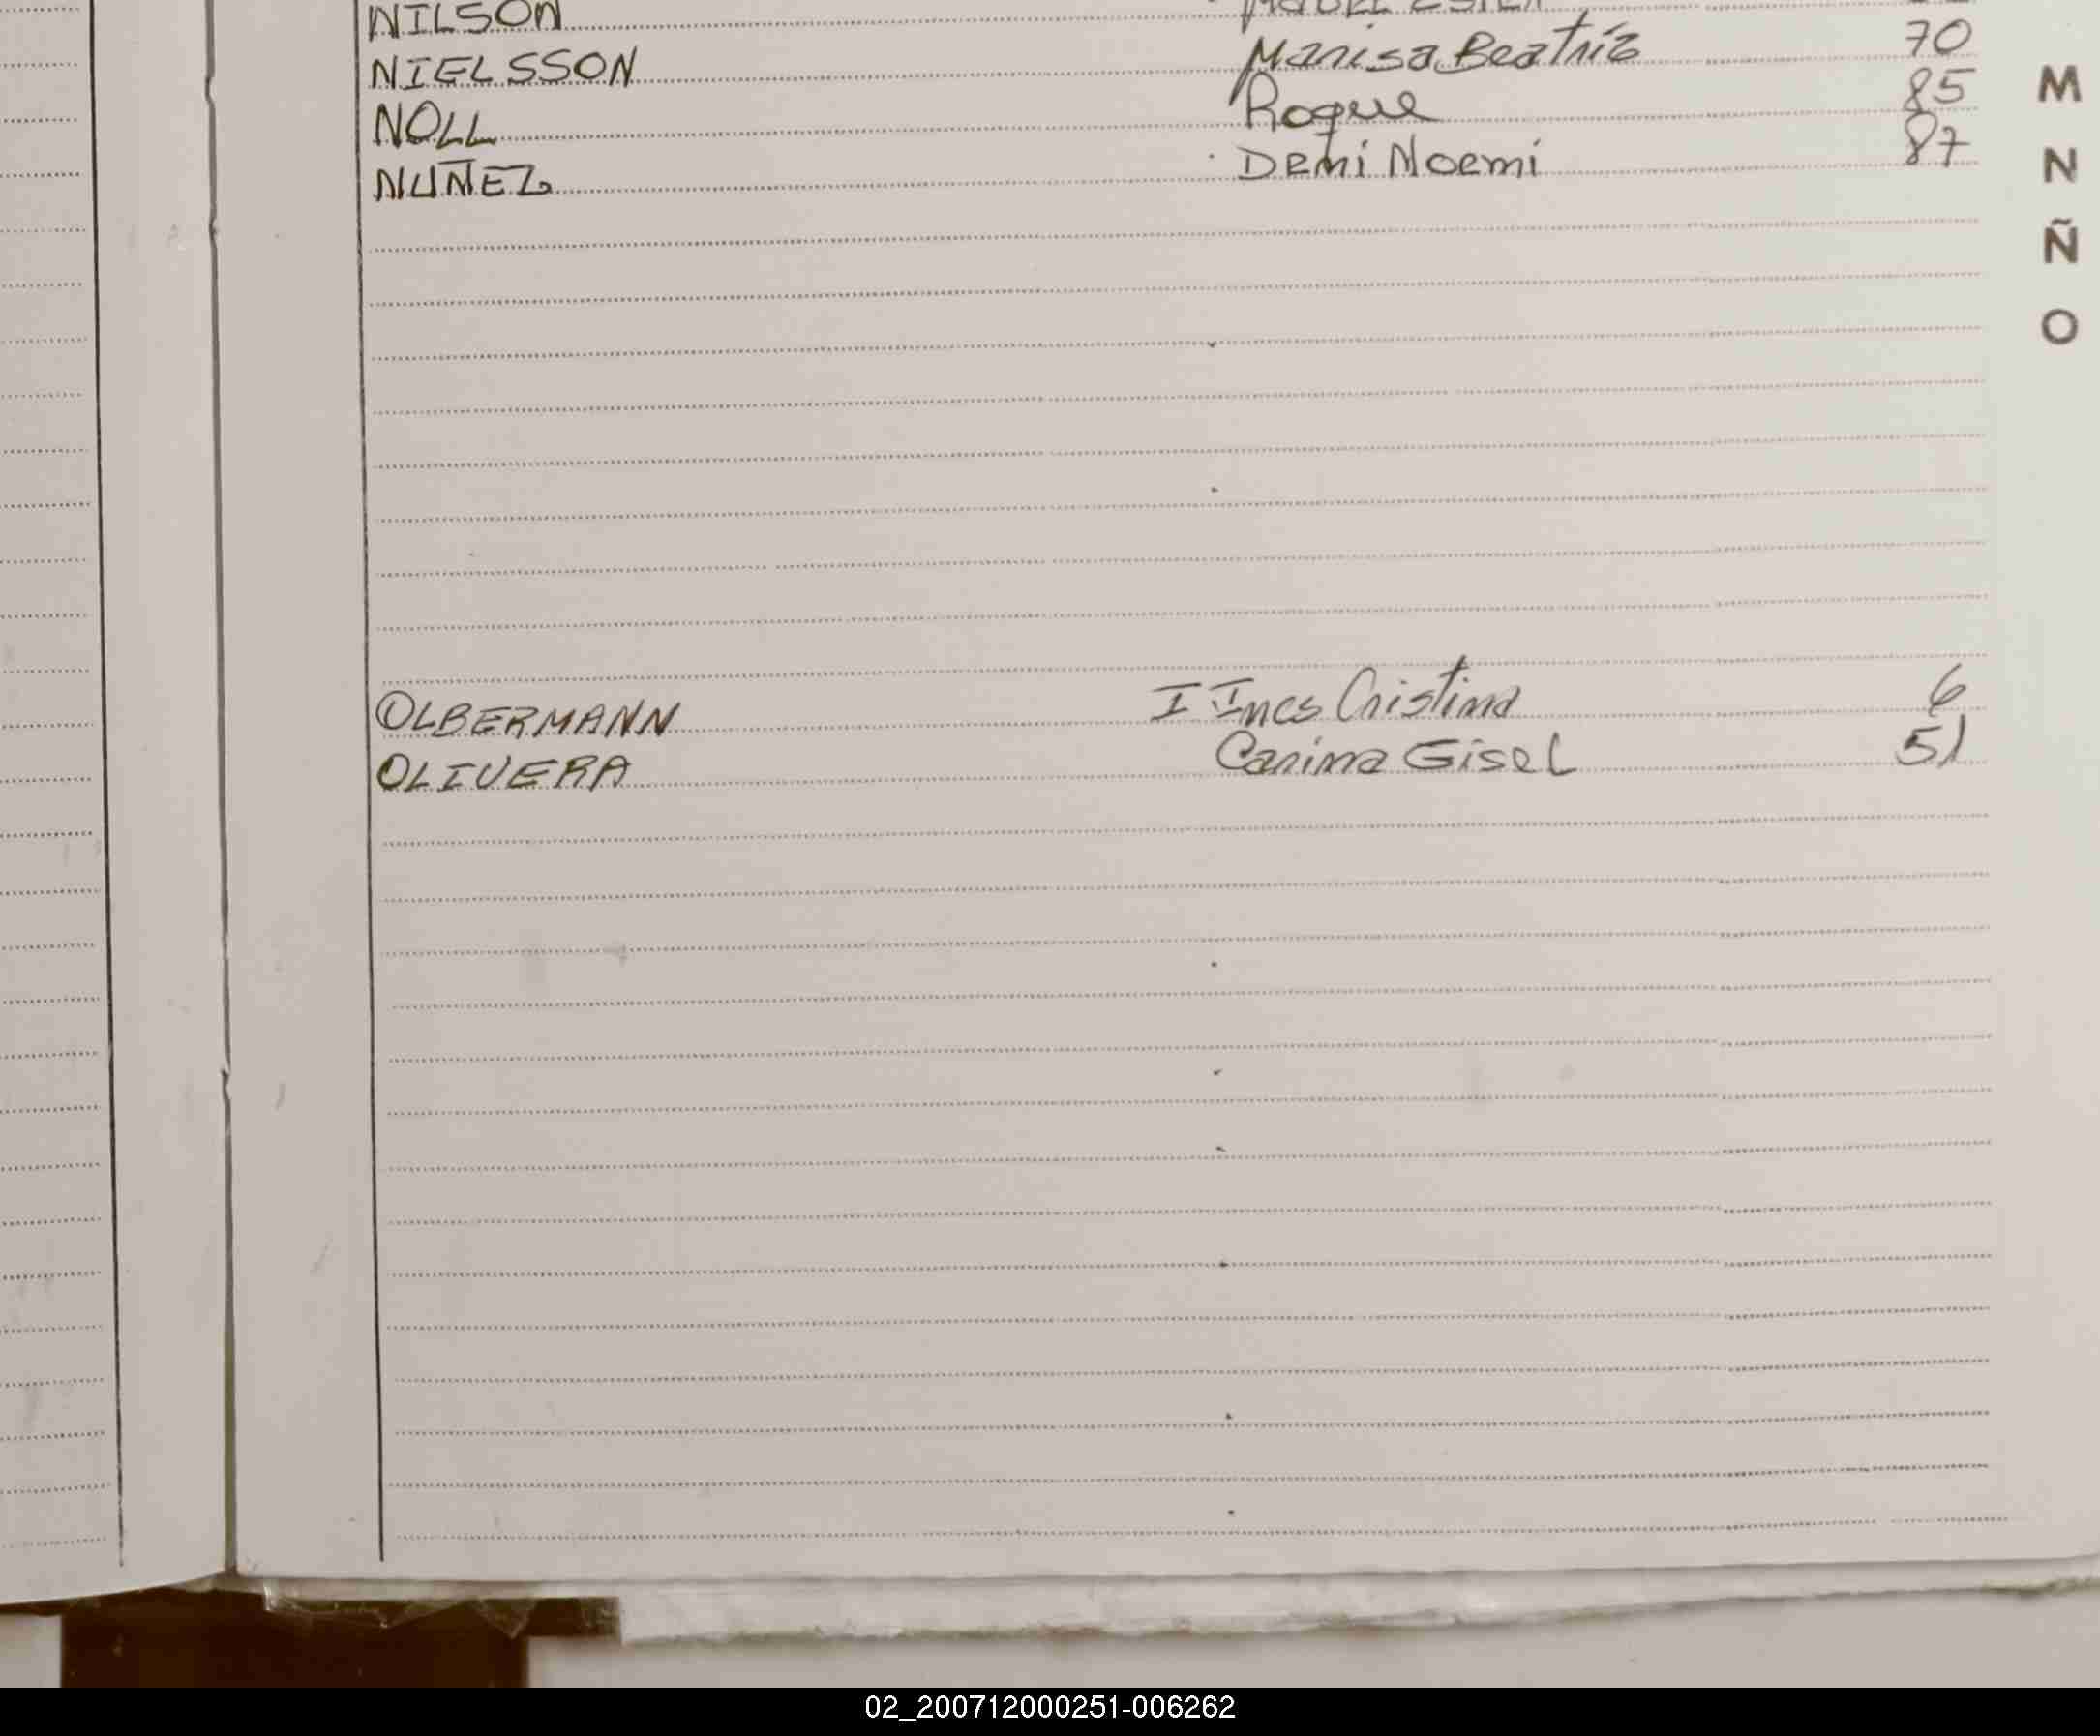 NILSON
NIELSSON Marisa Beatríz 70
NOLL Roque 85
NUÑEZ Demi Noemi 87
OLBERMANN I Ines Cristina 6
OLIVERA Carina Gisel 51
M
N
Ñ
O
02_200712000251-006262